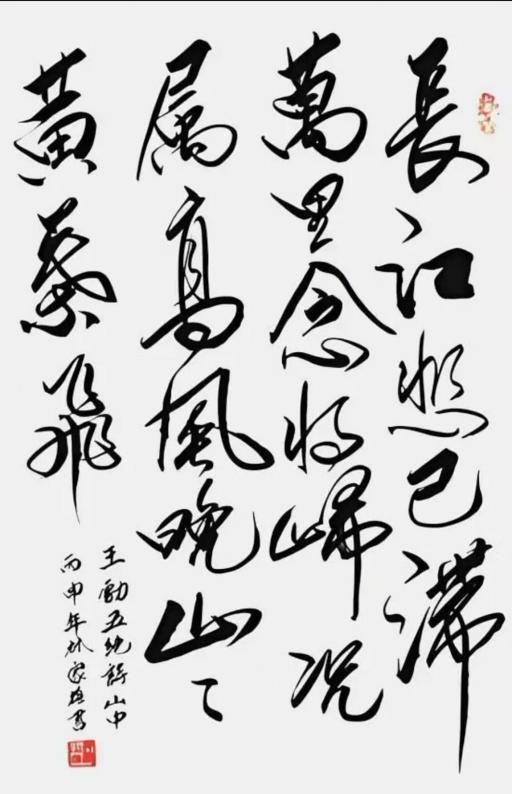 長江悲已滯
萬里念將歸況
属高風晚山々
黃葉飛
王勃五絶詩山中
丙申年林家書